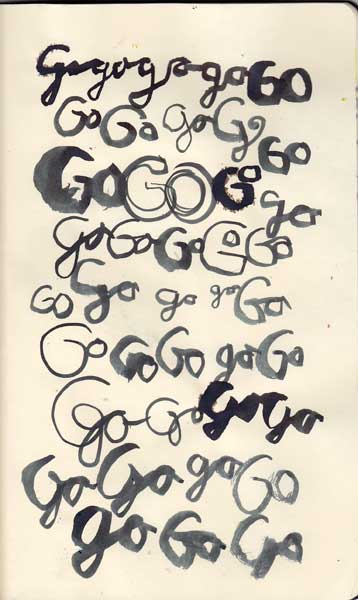 Gogogogogo GO
Go Go go Go
Go
Go GO Go
go
go Go Go Go Go
GO Go go go Go
Go Go Go go Go
Go Go Go go
Go Go go Go
go Go Go